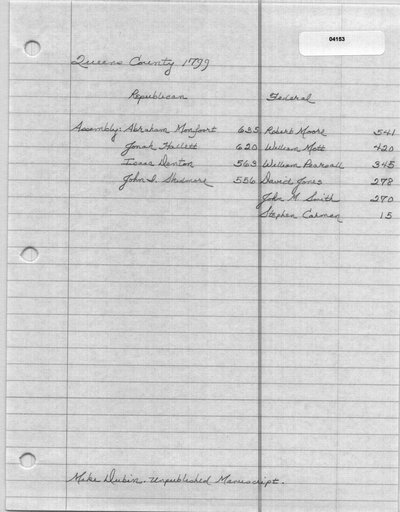 04153
Queens County 1799
Republican Federal
Assembly: Abraham Monfoort 635 Robert Moore 541
Jonah Hallett 620 William Mott 420
Isaac Denton 563 William Pearsall 345
John I. Skidmore 556 David Jones 278
John M. Smith 270
Stephen Carman 15
Mike Dubin. Unpublished Manuscript.